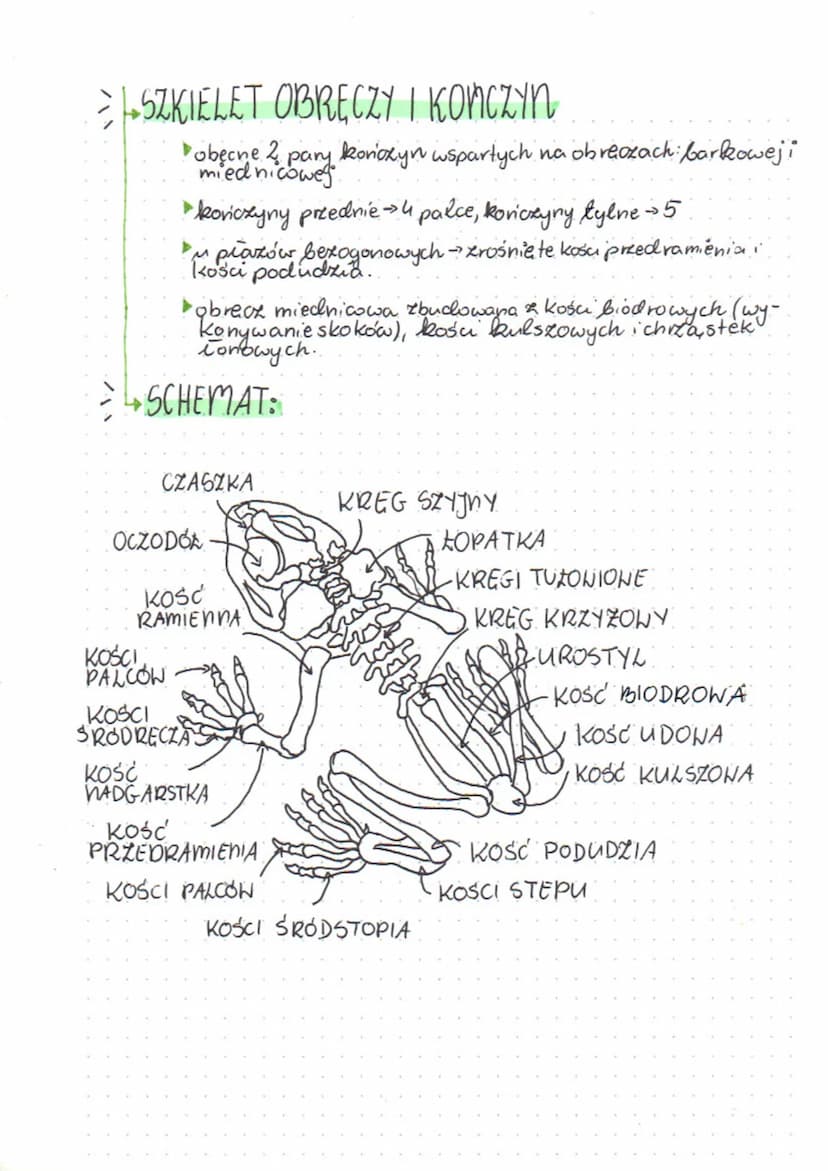 SZKIELET OBRĘCZY I KOŃCZYN
obecne 2 pary kończyn wspartych na obręczach: barkowej i
miednicowej
kończyny przednie → 4 palce, kończyny tylne → 5
u płazów bezogonowych → zrośnięte kości przedramienia i
kości podudzia.
obręcz miednicowa zbudowana z kości biodrowych (wy-
konywanie skoków), kości kulszowych i chrząstek
łonowych.
SCHEMAT:
CZASZKA
KRĘG SZYJNY
OCZODÓŁ
ŁOPATKA
KRĘGI TUŁOWIOWE
KOŚĆ
RAMIENNA
KRĘG KRZYŻOWY
KOŚCI
PALCÓW
UROSTYL
KOŚĆ BIODROWA
KOŚCI
ŚRÓDRĘCZA
KOŚĆ UDOWA
KOŚĆ
NADGARSTKA
KOŚĆ KULSZOWA
KOŚĆ
PRZEDRAMIENIA
KOŚĆ PODUDZIA
KOŚCI PALCÓW
KOŚCI STEPU
KOŚCI ŚRÓDSTOPIA